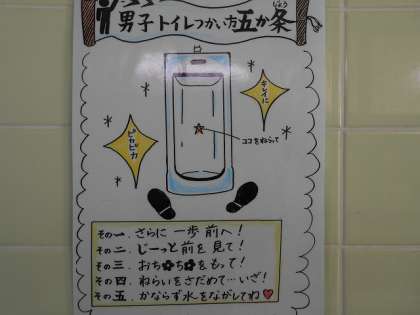 男子トイレつかい方五か条
じょう
キレイに
ココをねらって
ピカピカ
その一. さらに 一歩 前へ!
その二. じーっと前を見て!
その三. おち✿ち✿をもって!
その四. ねらいをさだめて…いざ!
その五. かならず水をながしてね♥